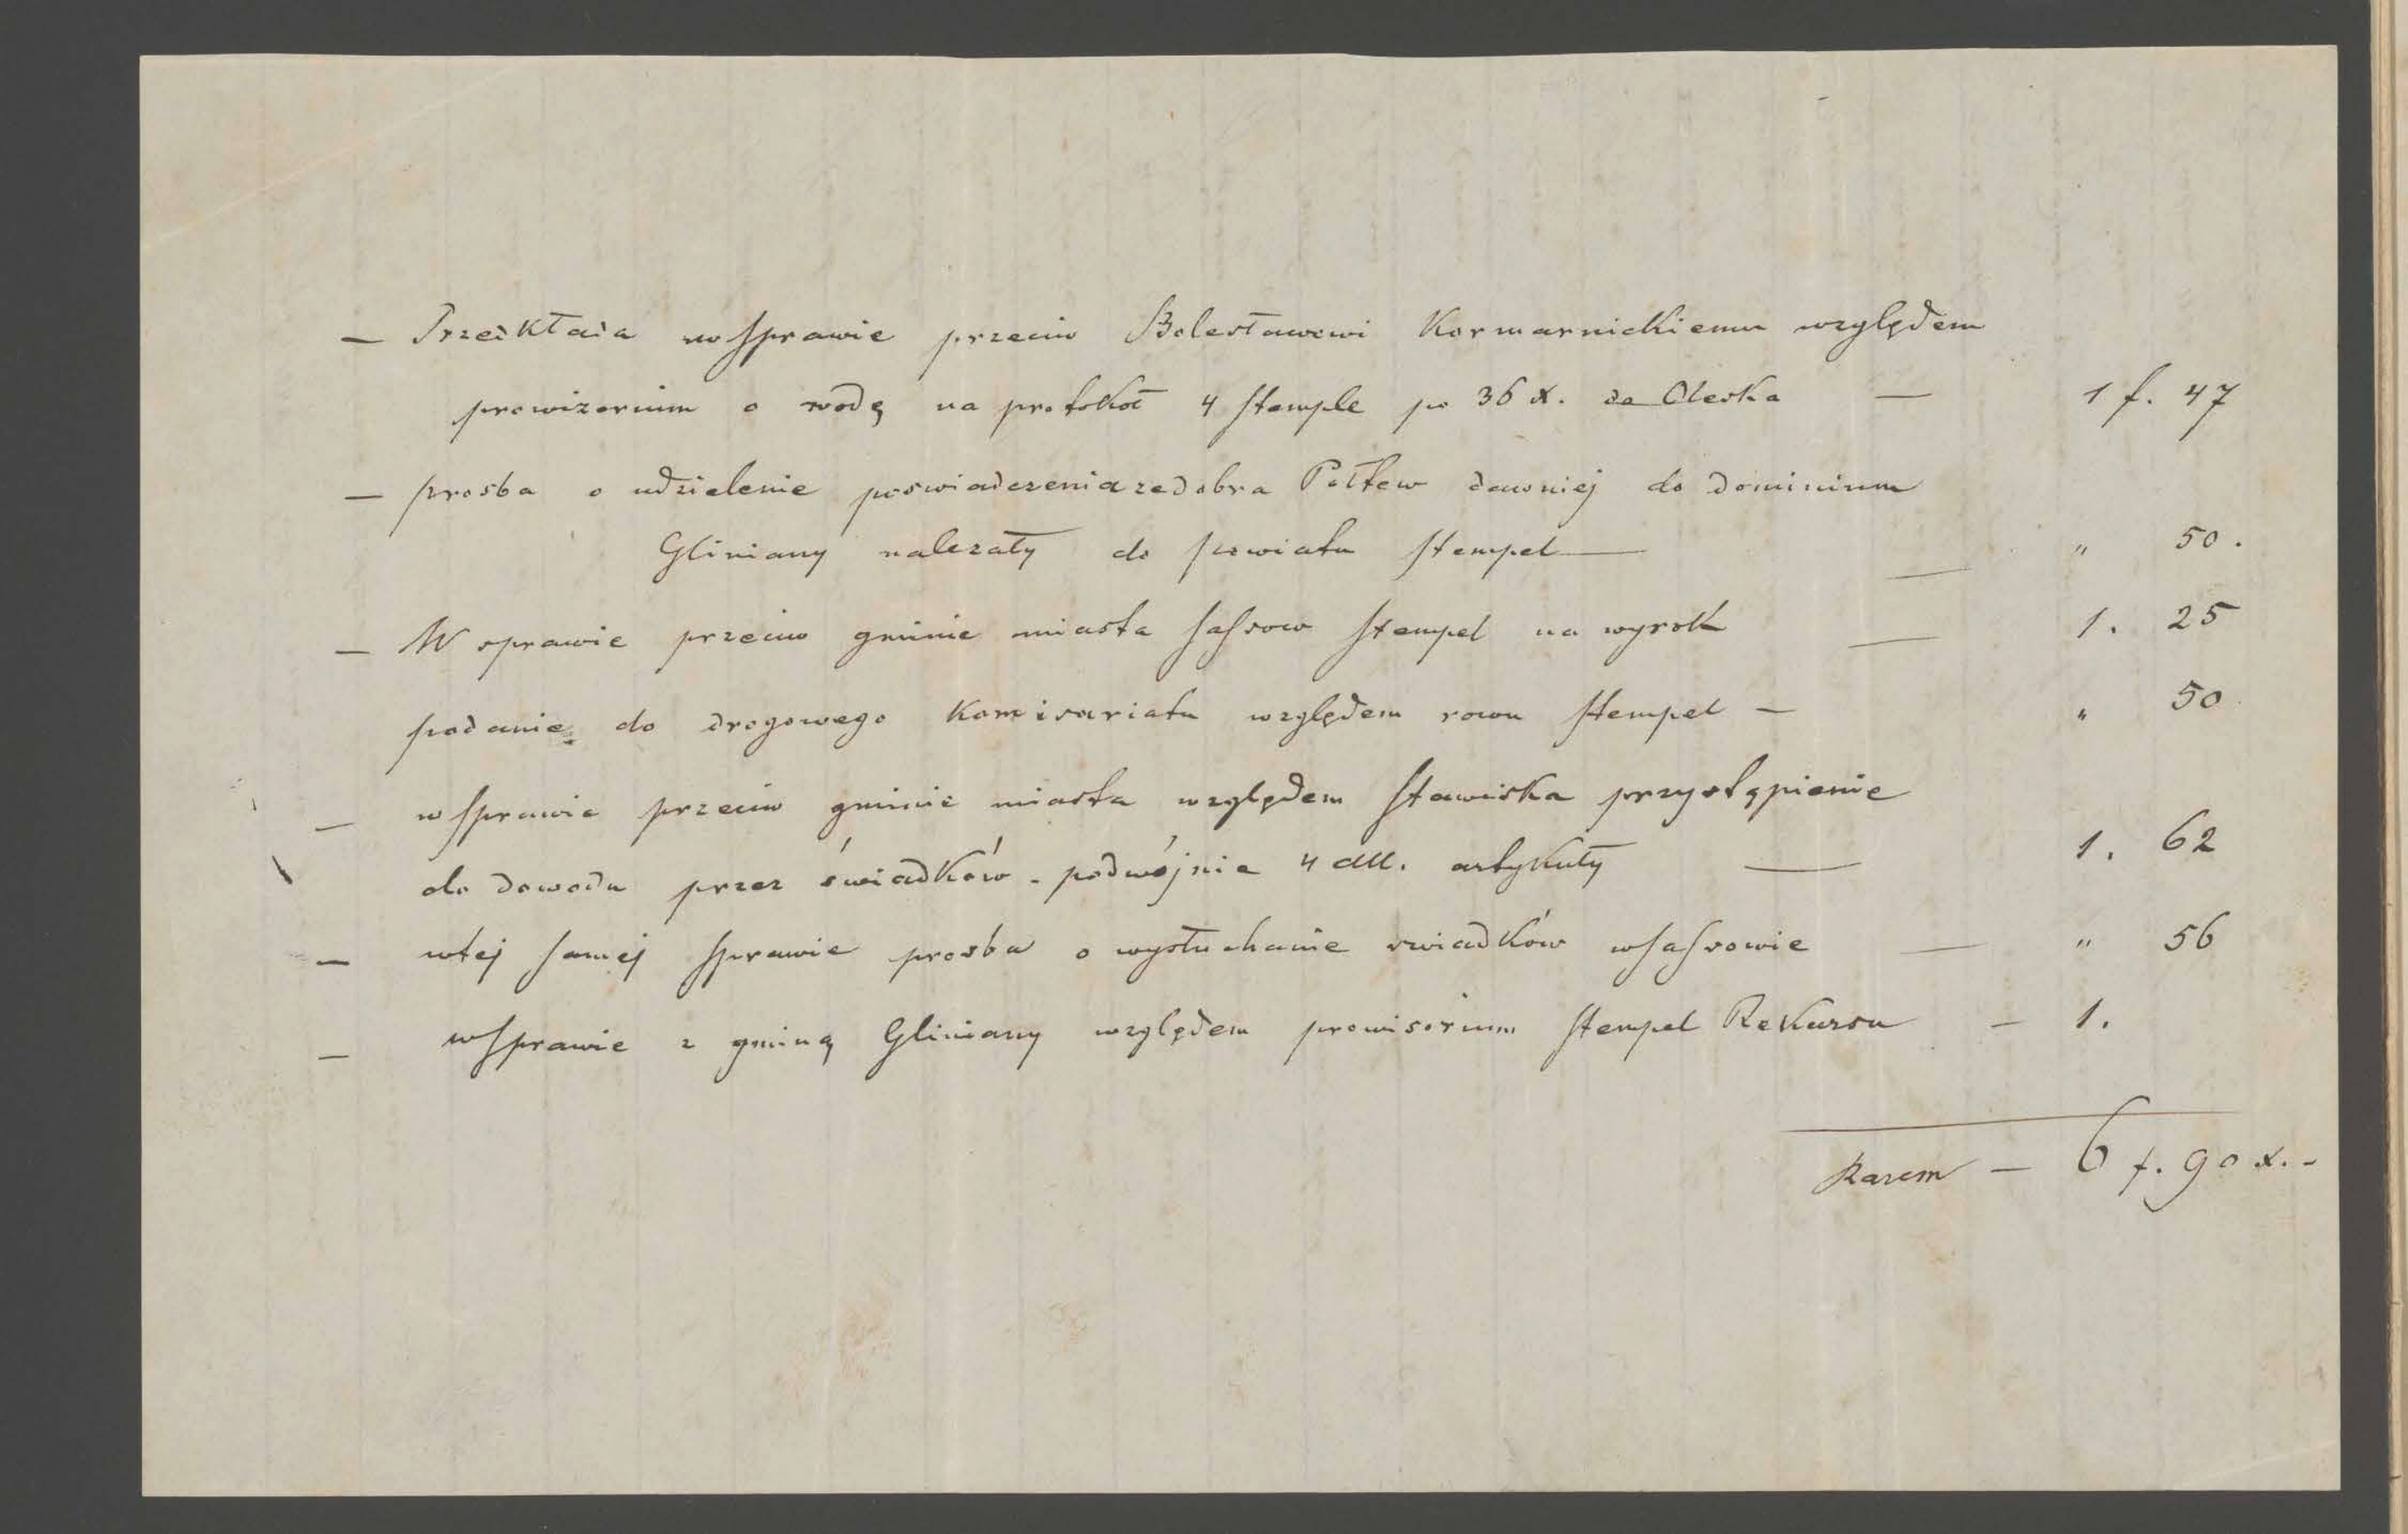 — Przedkłada w sprawie przeciw Bolesławowi Kormarnickiemu względem
prowizorium o wodę na protokoł 4 stemple po 36 x. do Oleska — 1 f. 47
— prosba o udzielenie poswiadczenia ze dobra Połtew dawniej do dominium
Gliniany nalezały do powiatu stempel — — " 50.
— W sprawie przeciw gminie miasta Sassow stempel na wyrok — 1. 25
podanie do drogowego Komisariatu względem rowu stempel — " 50
— w sprawie przeciw gminie miasta względem stawiska przystąpienie
do dowodu przez świadków - podwójnie 4 all. artykuły — 1. 62
— w tej samej sprawie prosba o wysłuchanie swiadków w Sassowie — " 56
— w sprawie z gminą Gliniany względem prowisorium stempel Rekursu — 1.
Razem — 6 f. 90 x. -